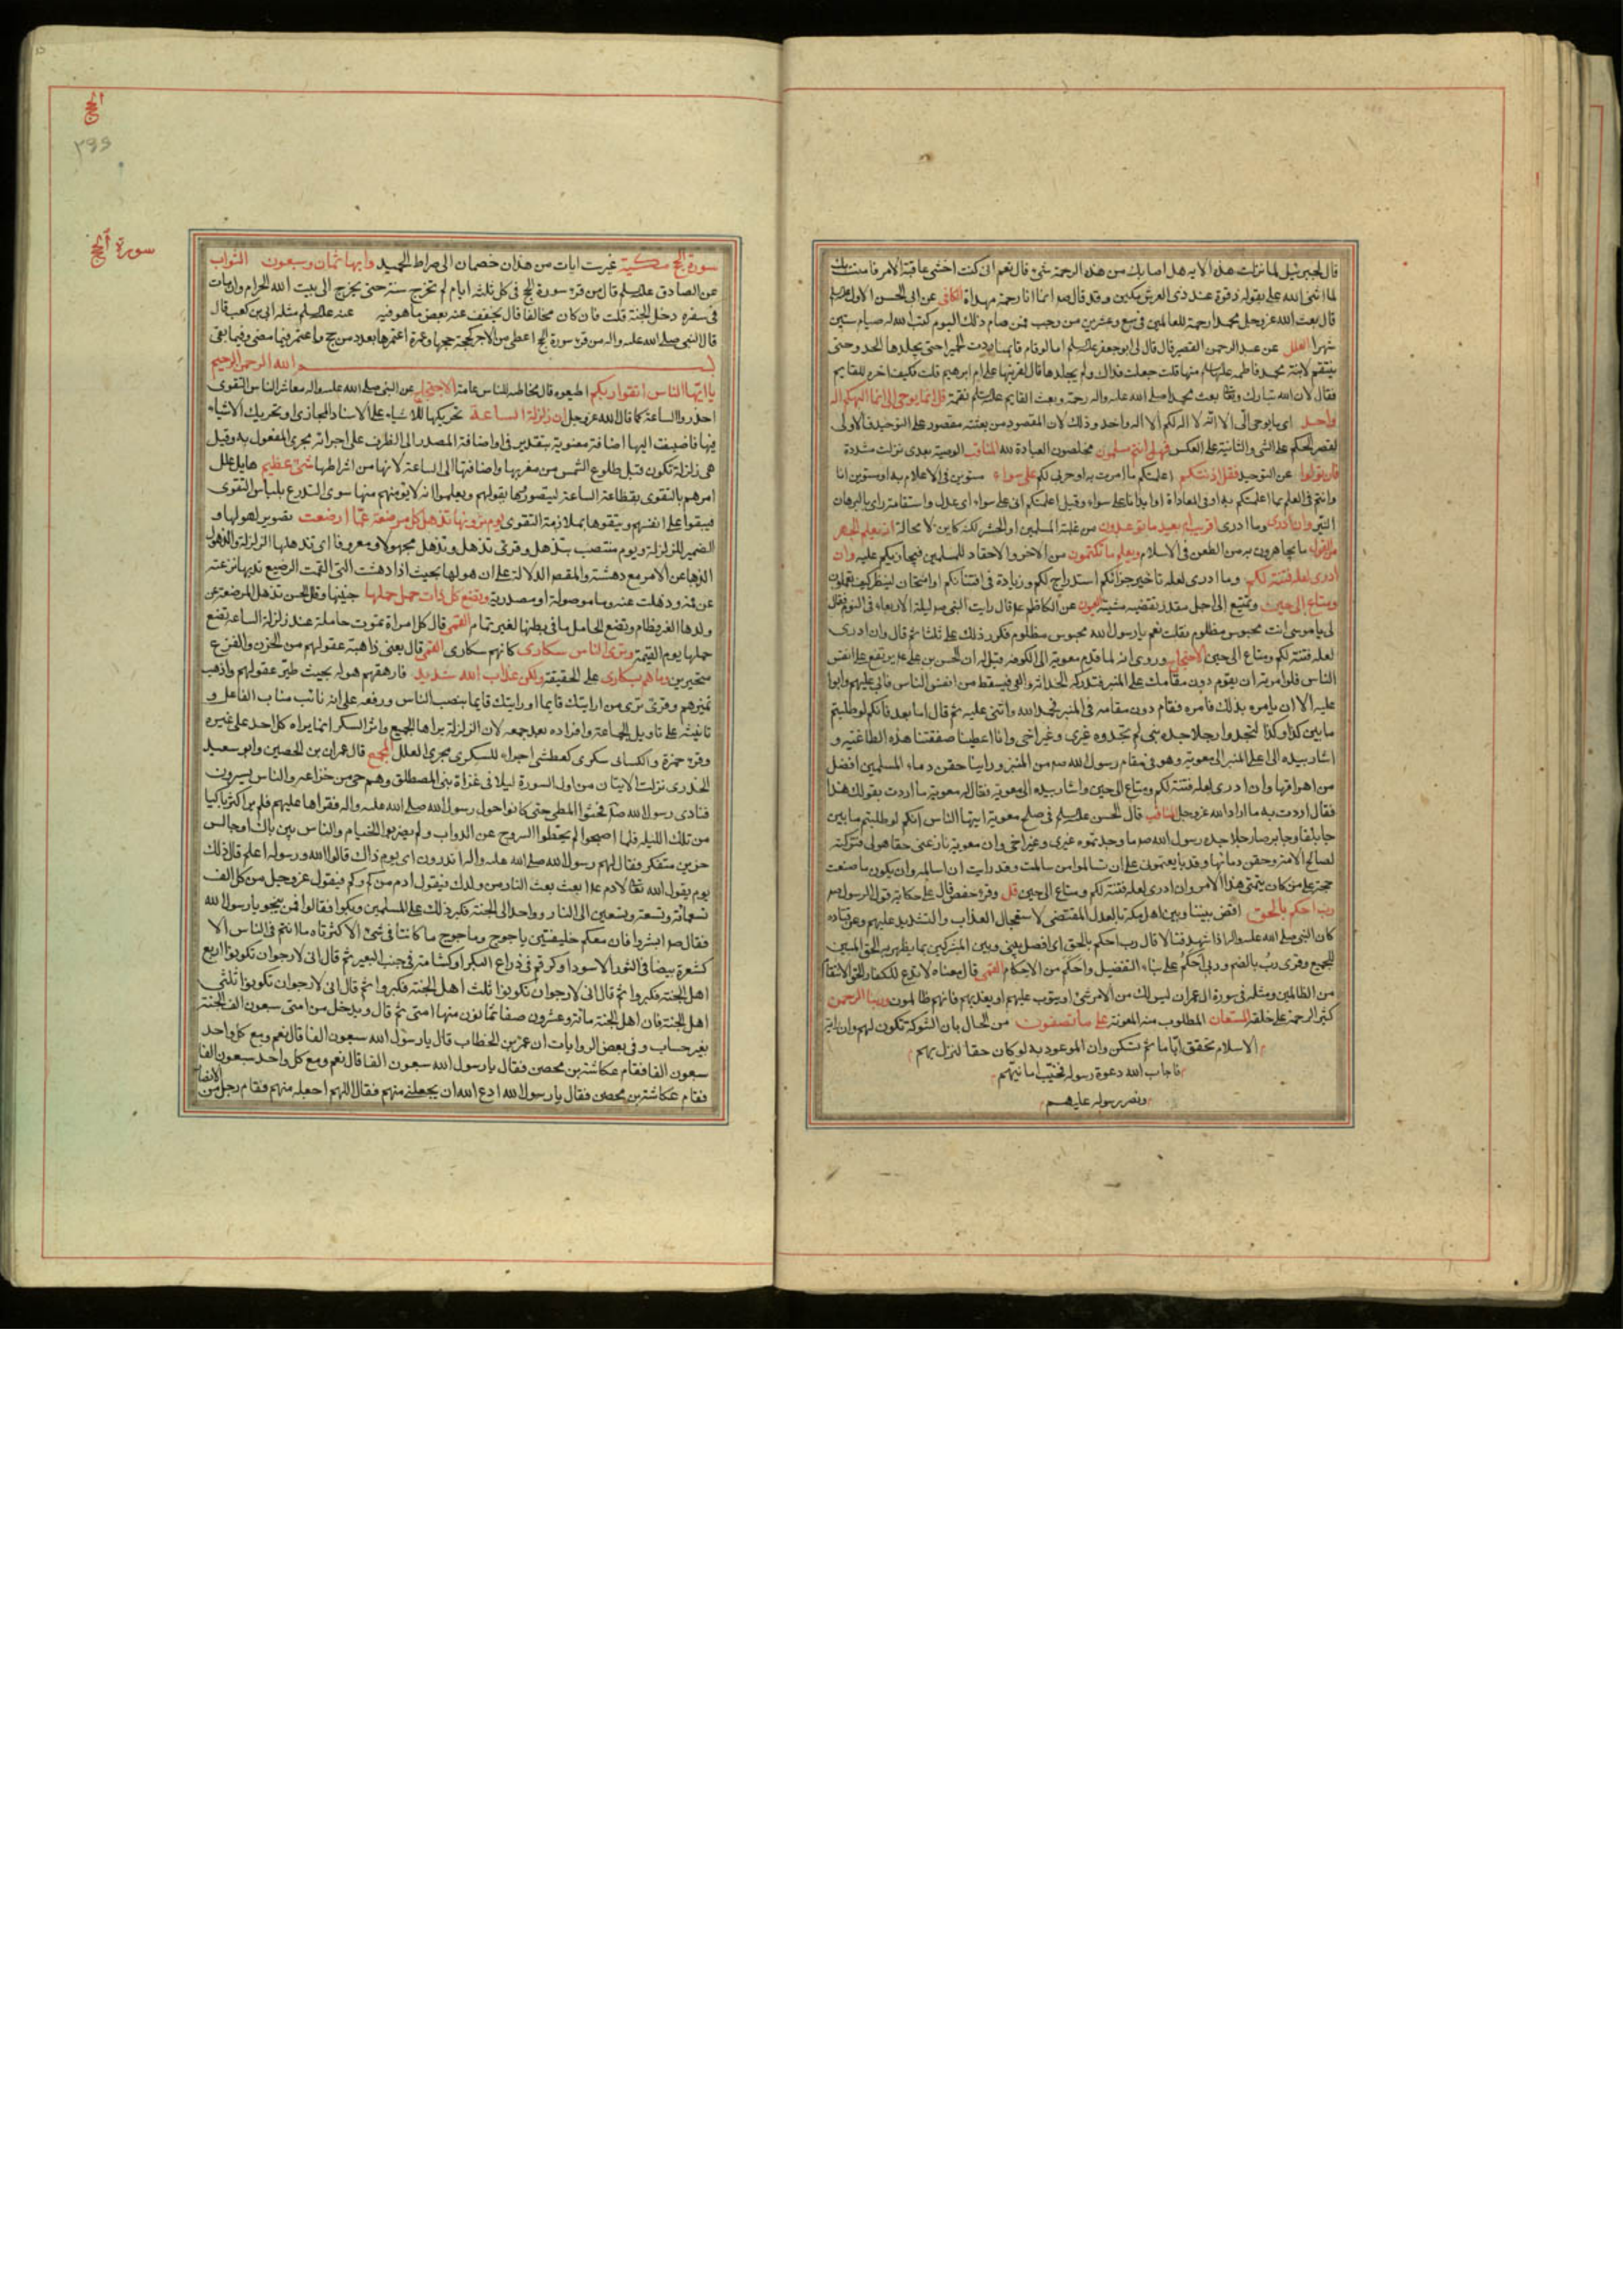 قال لجبرئيل لما نزلت هذه الآية هل اصابك من هذه الرحمة شئ قال نعم انى كنت اخشى عاقبة الامر فامنت بك
لما اثنى الله على بقوله ذى قوة عند ذى العرش مكين وقد قال ص انما انا رحمة مهداة الكافى عن ابى الحسن الاول
قال بعث الله عز وجل محمدا رحمة للعالمين فى سبع وعشرين من رجب فمن صام ذلك اليوم كتب الله له صيام ستين
شهرا العلل عن عبد الرحمن القصير قال قال لى ابو جعفر عليه السلم اما لو قام قايمنا ردت الحميرا حتى يجلدها الحد وحتى
ينتقم لابنة محمد فاطمه عليها السلم منها قلت جعلت فداك ولم يجلدها قال لفريتها على ام ابرهيم قلت فكيف اخره للقايم
فقال لان الله تبارك وتعالى بعث محمدا صلى الله عليه واله رحمة وبعث القايم عليه السلم نقمة قل انما يوحى الى انما الهكم اله
واحد اى ما يوحى الى الا انه لا اله لكم الا اله واحد وذلك لان المقصود من بعثته مقصور على التوحيد فالاولى
لقصر الحكم على الشئ والثانية على العكس فهل انتم مسلمون مخلصون العبادة لله المناقب الوصية بعدى نزلت مشددة
فان تولوا عن التوحيد فقل اذنتكم اعلمتكم ما امرت به او حربى لكم على سواء مستوين فى الاعلام به او مستوين انا
وانتم فى العلم بما اعلمتكم به او فى المعاداة او ايذانا على سواء وقيل اعلمتكم انى على سواء اى عدل واستقامة راى بالبرهان
النير وان ادرى وما ادرى اقريب ام بعيد ما توعدون من غلبة المسلمين او الحشر لكنه كاين لا محالة انه يعلم الجهر
من القول ما تجاهرون به من الطعن فى الاسلام ويعلم ما تكتمون من الاحن والاحقاد للمسلمين فيجازيكم عليه وان
ادرى لعله فتنة لكم وما ادرى لعله تاخير جزائكم استدراج لكم وزيادة فى افتتانكم او امتحان لينظر كيف تعملون
ومتاع الى حين وتمتيع الى اجل مقدر تقتضيه مشيته العيون عن الكاظم ع قال رايت النبى ص ليلة الاربعاء فى النوم فقال
لى يا موسى انت محبوس مظلوم فقلت نعم يا رسول الله محبوس مظلوم فكرر ذلك على ثلثا ثم قال وان ادرى
لعله فتنة لكم ومتاع الى حين الاحتجاج وروى انه لما قدم معوية الى الكوفة قيل له ان الحسن بن على ع يرتفع على انفس
الناس فلو امرته ان يقوم دون مقامك على المنبر فتدركه الحداثة والعى فيسقط من انفس الناس فابى عليهم وابوا
عليه الا ان يامره بذلك فامره فقام دون مقامه فى المنبر فحمد الله واثنى عليه ثم قال اما بعد فانكم لو طلبتم
ما بين كذا وكذا لتجدوا رجلا جده نبى لم تجدوه غيرى وغير اخى وانا اعطينا صفقتنا هذه الطاغية و
اشار بيده الى اعلى المنبر الى معوية وهو فى مقام رسول الله ص من المنبر وراينا حقن دماء المسلمين افضل
من اهراقها وان ادرى لعله فتنة لكم ومتاع الى حين واشار بيده الى معوية فقال له معوية ما اردت بقولك هذا
فقال اردت به ما اراد الله عز وجل المناقب قال الحسن عليه السلم فى صلح معوية ايها الناس انكم لو طلبتم ما بين
جابلقا وجابرصا رجلا جده رسول الله ص ما وجدتموه غيرى وغير اخى وان معوية نازعنى حقا هو لى فتركته
لصالح الامة وحقن دمائها وقد بايعتمونى على ان تسالموا من سالمت وقد رايت ان اسالمه وان يكون ما صنعت
حجة على من كان يتمنى هذا الامر وان ادرى لعله فتنة لكم ومتاع الى حين قل وقرء حفص قال على حكاية قول الرسول ص
رب احكم بالحق اقض بيننا وبين اهل مكة بالعدل المقتضى لاستعجال العذاب والتشديد عليهم وعن قتاده
كان النبى صلى الله عليه واله اذا شهد قتالا قال رب احكم بالحق اى افصل بينى وبين المشركين بما يظهر به الحق المبين
للجميع وقرى رب بالضم وربى احكم على بناء التفضيل واحكم من الاحكام القمى قال معناه لا تدع للكفار
من الظالمين ومثله فى سورة ال عمران ليس لك من الامر شئ او يتوب عليهم او يعذبهم فانهم ظالمون وربنا الرحمن
كثير الرحمة على خلقه المستعان المطلوب منه المعونة على ما تصفون من الحال بان الشوكة تكون لهم وان راية
الاسلام تخفق اياما ثم تسكن وان الموعود به لو كان حقا لنزل بهم
فاجاب الله دعوة رسوله فخيب امانيهم
ونصر رسوله عليهم
الحج
٢٩٩
سورة الحج
سورة الحج مكية غيرست ايات من هذان خصمان الى صراط الحميد وايها ثمان وسبعون الثواب
عن الصادق عليه السلم قال من قرء سورة الحج فى كل ثلثة ايام لم تخرج سنته حتى يخرج الى بيت الله الحرام وان مات
فى سفره دخل الجنة قلت فان كان مخالفا قال يخفف عنه بعض ما هو فيه عنه عليه السلم مثله ابى بن كعب قال
قال النبى صلى الله عليه واله من قرء سورة الحج اعطى من الاجر كحجة حجها وعمرة اعتمرها بعدد من حج واعتمر فيما مضى وفيما بقى
بسم الله الرحمن الرحيم
يا ايها الناس اتقوا ربكم اطيعوه قال مخاطبه للناس عامة الاحتجاج عن النبى صلى الله عليه واله معاشر الناس التقوى
احذروا الساعة كما قال الله عز وجل ان زلزلة الساعة تحريكها للاشياء على الاسناد المجازى او تحريك الاشياء
فيها فاضيفت اليها اضافة معنوية بتقدير فى او اضافة المصدر الى الظرف على اجرائه مجرى المفعول به وقيل
هى زلزلة تكون قبل طلوع الشمس من مغربها واضافتها الى الساعة لانها من اشراطها شئ عظيم هايل علل
امرهم بالتقوى بفظاعة الساعة ليتصوروها بقولهم ويعلموا انه لا يؤمنهم منها سوى التدرع بلباس التقوى
فيبقوا على انفسهم ويتقوها بملازمة التقوى يوم ترونها تذهل كل مرضعة عما ارضعت تصوير لهولها و
الضمير للزلزلة ويوم منتصب بتذهل وقرئ تذهل وتذهل مجهولا ومعروفا اى تذهلها الزلزلة والذهول
الذهاب عن الامر مع دهشة والمقصود الدلالة على ان هولها بحيث اذا دهشت التى القمت الرضيع ثديها نزعته
عن فيه وذهلت عنه وما موصولة او مصدرية وتضع كل ذات حمل حملها جنينها وقال الحسن تذهل المرضعة عن
ولدها لغير فطام وتضع الحامل ما فى بطنها لغير تمام القمى قال كل امراة تموت حاملة عند زلزلة الساعة تضع
حملها يوم القيمة وترى الناس سكارى كانهم سكارى القمى قال يعنى ذاهبة عقولهم من الحزن والفزع
متحيرين وما هم بسكارى على الحقيقة ولكن عذاب الله شديد فارهقهم هوله بحيث طير عقولهم واذهب
تميزهم وقرئ ترى من ارايتك قايما او رايتك قايما بنصب الناس ورفعه على انه نائب مناب الفاعل و
تانيثه على تاويل الجماعة وافراده بعد جمعه لان الزلزلة يراها الجميع واثر السكر انما يراه كل احد على غيره
وقرء حمزة والكسائى سكرى كعطشى اجراء للسكرى مجرى العلل المجمع قال عمران بن الحصين وابو سعيد
الخدرى نزلت الايتان من اول السورة ليلا فى غزاة بنى المصطلق وهم حى من خزاعه والناس يسيرون
فنادى رسول الله ص فحثوا المطى حتى كانوا حول رسول الله صلى الله عليه واله فقراها عليهم فلم ير اكثر باكيا
من تلك الليلة فلما اصبحوا لم يحطوا السروج عن الدواب ولم يضربوا الخيام والناس بين باك او جالس
حزين متفكر فقال لهم رسول الله صلى الله عليه واله اتدرون اى يوم ذاك قالوا الله ورسوله اعلم قال ذلك
يوم يقول الله تعالى لادم ع ابعث بعث النار من ولدك فيقول ادم من كم وكم فيقول عز وجل من كل الف
تسعمائة وتسعة وتسعين الى النار وواحدا الى الجنة فكبر ذلك على المسلمين وبكوا فقالوا فمن ينجو يا رسول الله
فقال ص ابشروا فان معكم خليقتين ياجوج وماجوج ما كانتا فى شئ الا كثرتاه ما انتم فى الناس الا
كشعرة بيضا فى الثور الاسود او كرقم فى ذراع البكر او كشامة فى جنب البعير ثم قال انى لارجو ان تكونوا اربع
اهل الجنة فكبروا ثم قال انى لارجو ان تكونوا ثلث اهل الجنة فكبروا ثم قال انى لارجو ان تكونوا ثلثى
اهل الجنة فان اهل الجنة مائة وعشرون صفا ثمانون منها امتى ثم قال ويدخل من امتى سبعون الف الجنة
بغير حساب وفى بعض الروايات ان عمر بن الخطاب قال يا رسول الله سبعون الفا قال نعم ومع كل واحد
سبعون الفا فقام عكاشة بن محصن فقال يا رسول الله سبعون الفا قال نعم ومع كل واحد سبعون الفا
فقام عكاشة بن محصن فقال يا رسول الله ادع الله ان يجعلنى منهم فقال اللهم اجعله منهم فقام رجل من الانصار